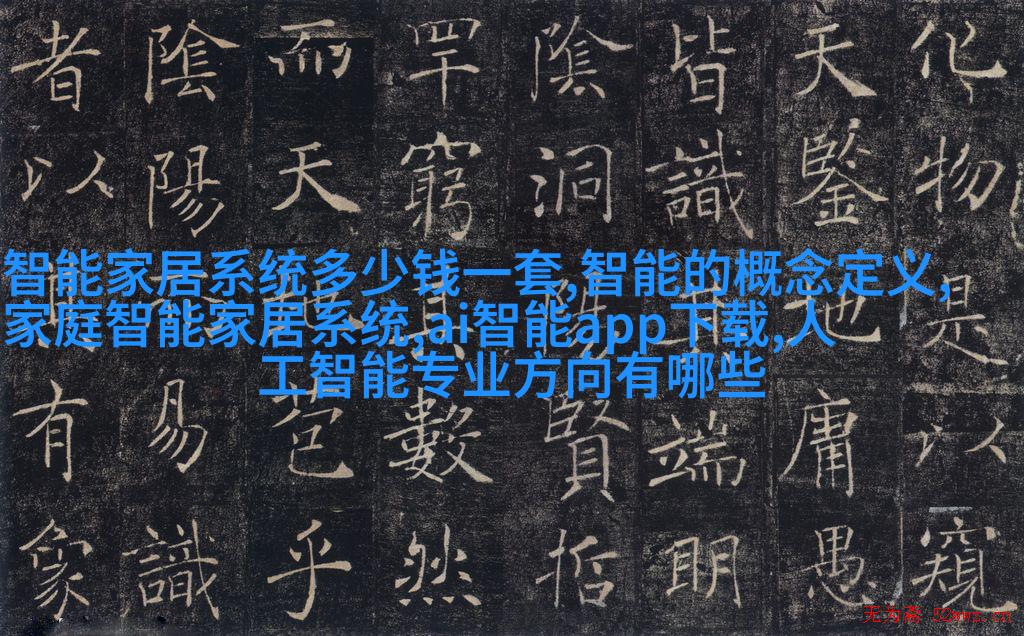 化物是以窺
天鑒地庸愚
皆識端明
陰洞賢哲
罕窮數然
而天苞乎
陰陽易識
者以有象
智能家居系统多少钱一套,智能的概念定义,
家庭智能家居系统,ai智能app下载,人
工智能专业方向有哪些
无为斋 52wwz.cn